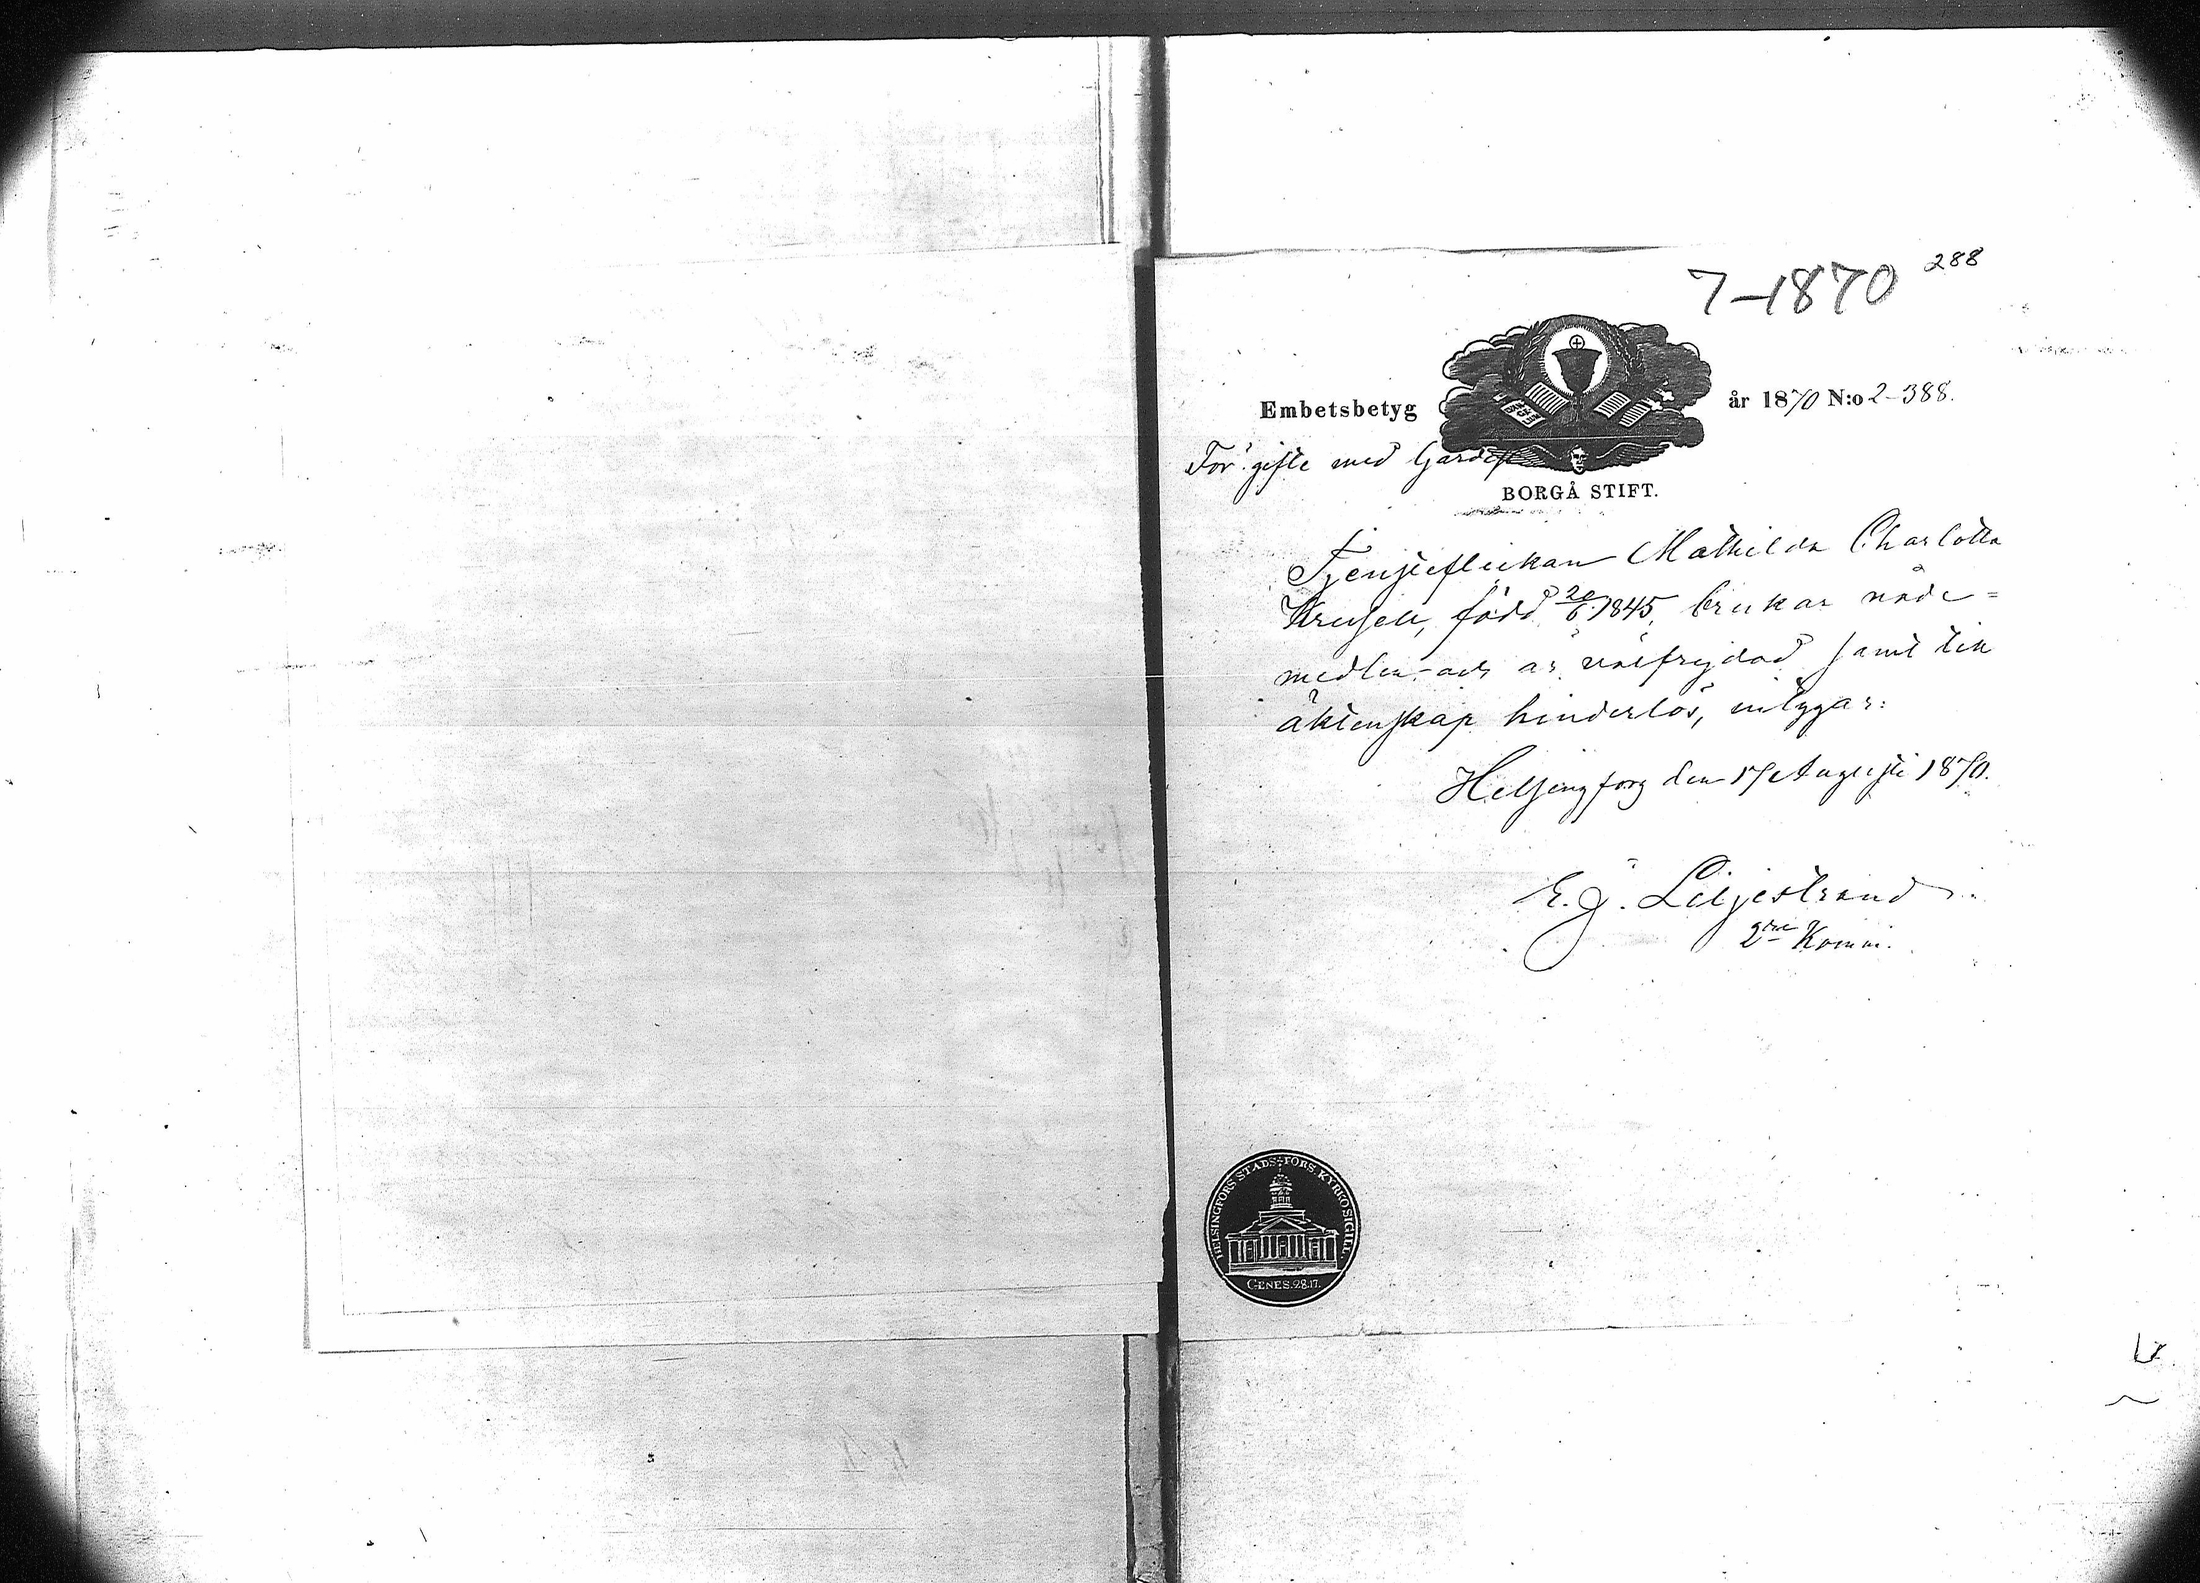 288
7–1870
Embetsbetyg år 1870 N:o 2–388.
För gifte med Gardist
BORGÅ STIFT.
Tjensteflickan Mathilda Charlotta
Krusell, född 20/6 1845, brukar nåde=
medlen och är välfrejdad samt till
äktenskap hinderlös, intygar:
Helsingfors den 17 Augusti 1870.
E. J. Liljestrand
2ne Komm.
HELSINGFORS STADS FÖRS. KYRKOSIGILL.
GENES. 28.17.